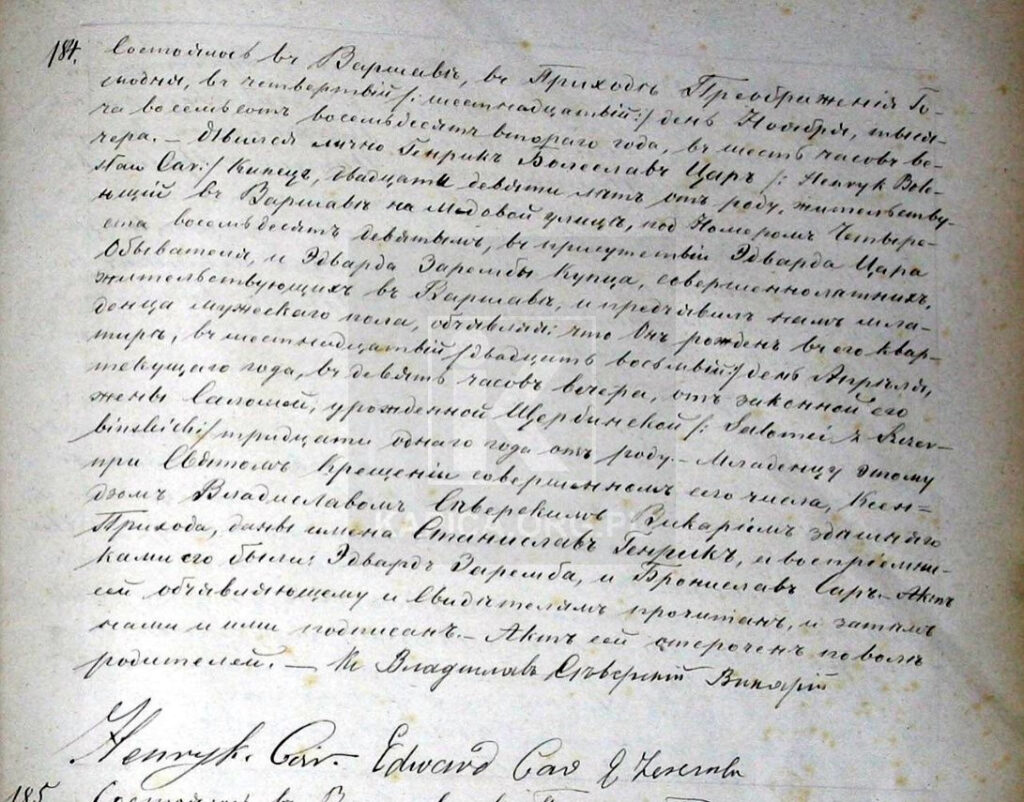 184.
Состоялось въ Варшавѣ, въ Приходѣ Преображенія Го-
сподня, въ четвертый /: шестнадцатый :/ день Ноября, тыся-
ча восемьсотъ восемьдесятъ втораго года, въ шесть часовъ ве-
чера. – Явился лично Генрикъ Болеславъ Царъ /: Henryk Bole-
sław Car :/ Купецъ, двадцати девяти лѣтъ отъ роду, жительству-
ющій въ Варшавѣ на Медовой улицѣ, подъ Номеромъ Четыре-
ста восемьдесятъ девятымъ, въ присутствіи Эдварда Цара
Обывателя, и Эдварда Зарембы Купца, совершеннолѣтнихъ,
жительствующихъ въ Варшавѣ, и предъявилъ намъ мла-
денца мужескаго пола, объявляя: что Онъ рожденъ въ его квар-
тирѣ, въ шестнадцатый /: двадцать восьмый :/ день Апрѣля,
текущаго года, въ девять часовъ вечера, отъ законной его
жены Саломеи, урожденной Щербинской /: Salomei z Szczer-
binskich :/ тридцати однаго года отъ роду. – Младенцу этому
при Святомъ Крещеніи совершенномъ его числа, Ксен-
дзомъ Владиславомъ Сѣверскимъ Викаріемъ здѣшняго
Прихода, даны имена Станиславъ Генрикъ, а воспріемни-
ками его были: Эдвардъ Заремба, и Брониславъ Царъ. – Актъ
сей объявляющему и Свидѣтелямъ прочитанъ, и затѣмъ
нами и ими подписанъ. – Актъ сей отсроченъ по волѣ
родителей. – Кс Владиславъ Сѣверскій Викарій
Henryk. Car. Edward Car
185.
Состоялось въ
KAPICA.ORG.PL